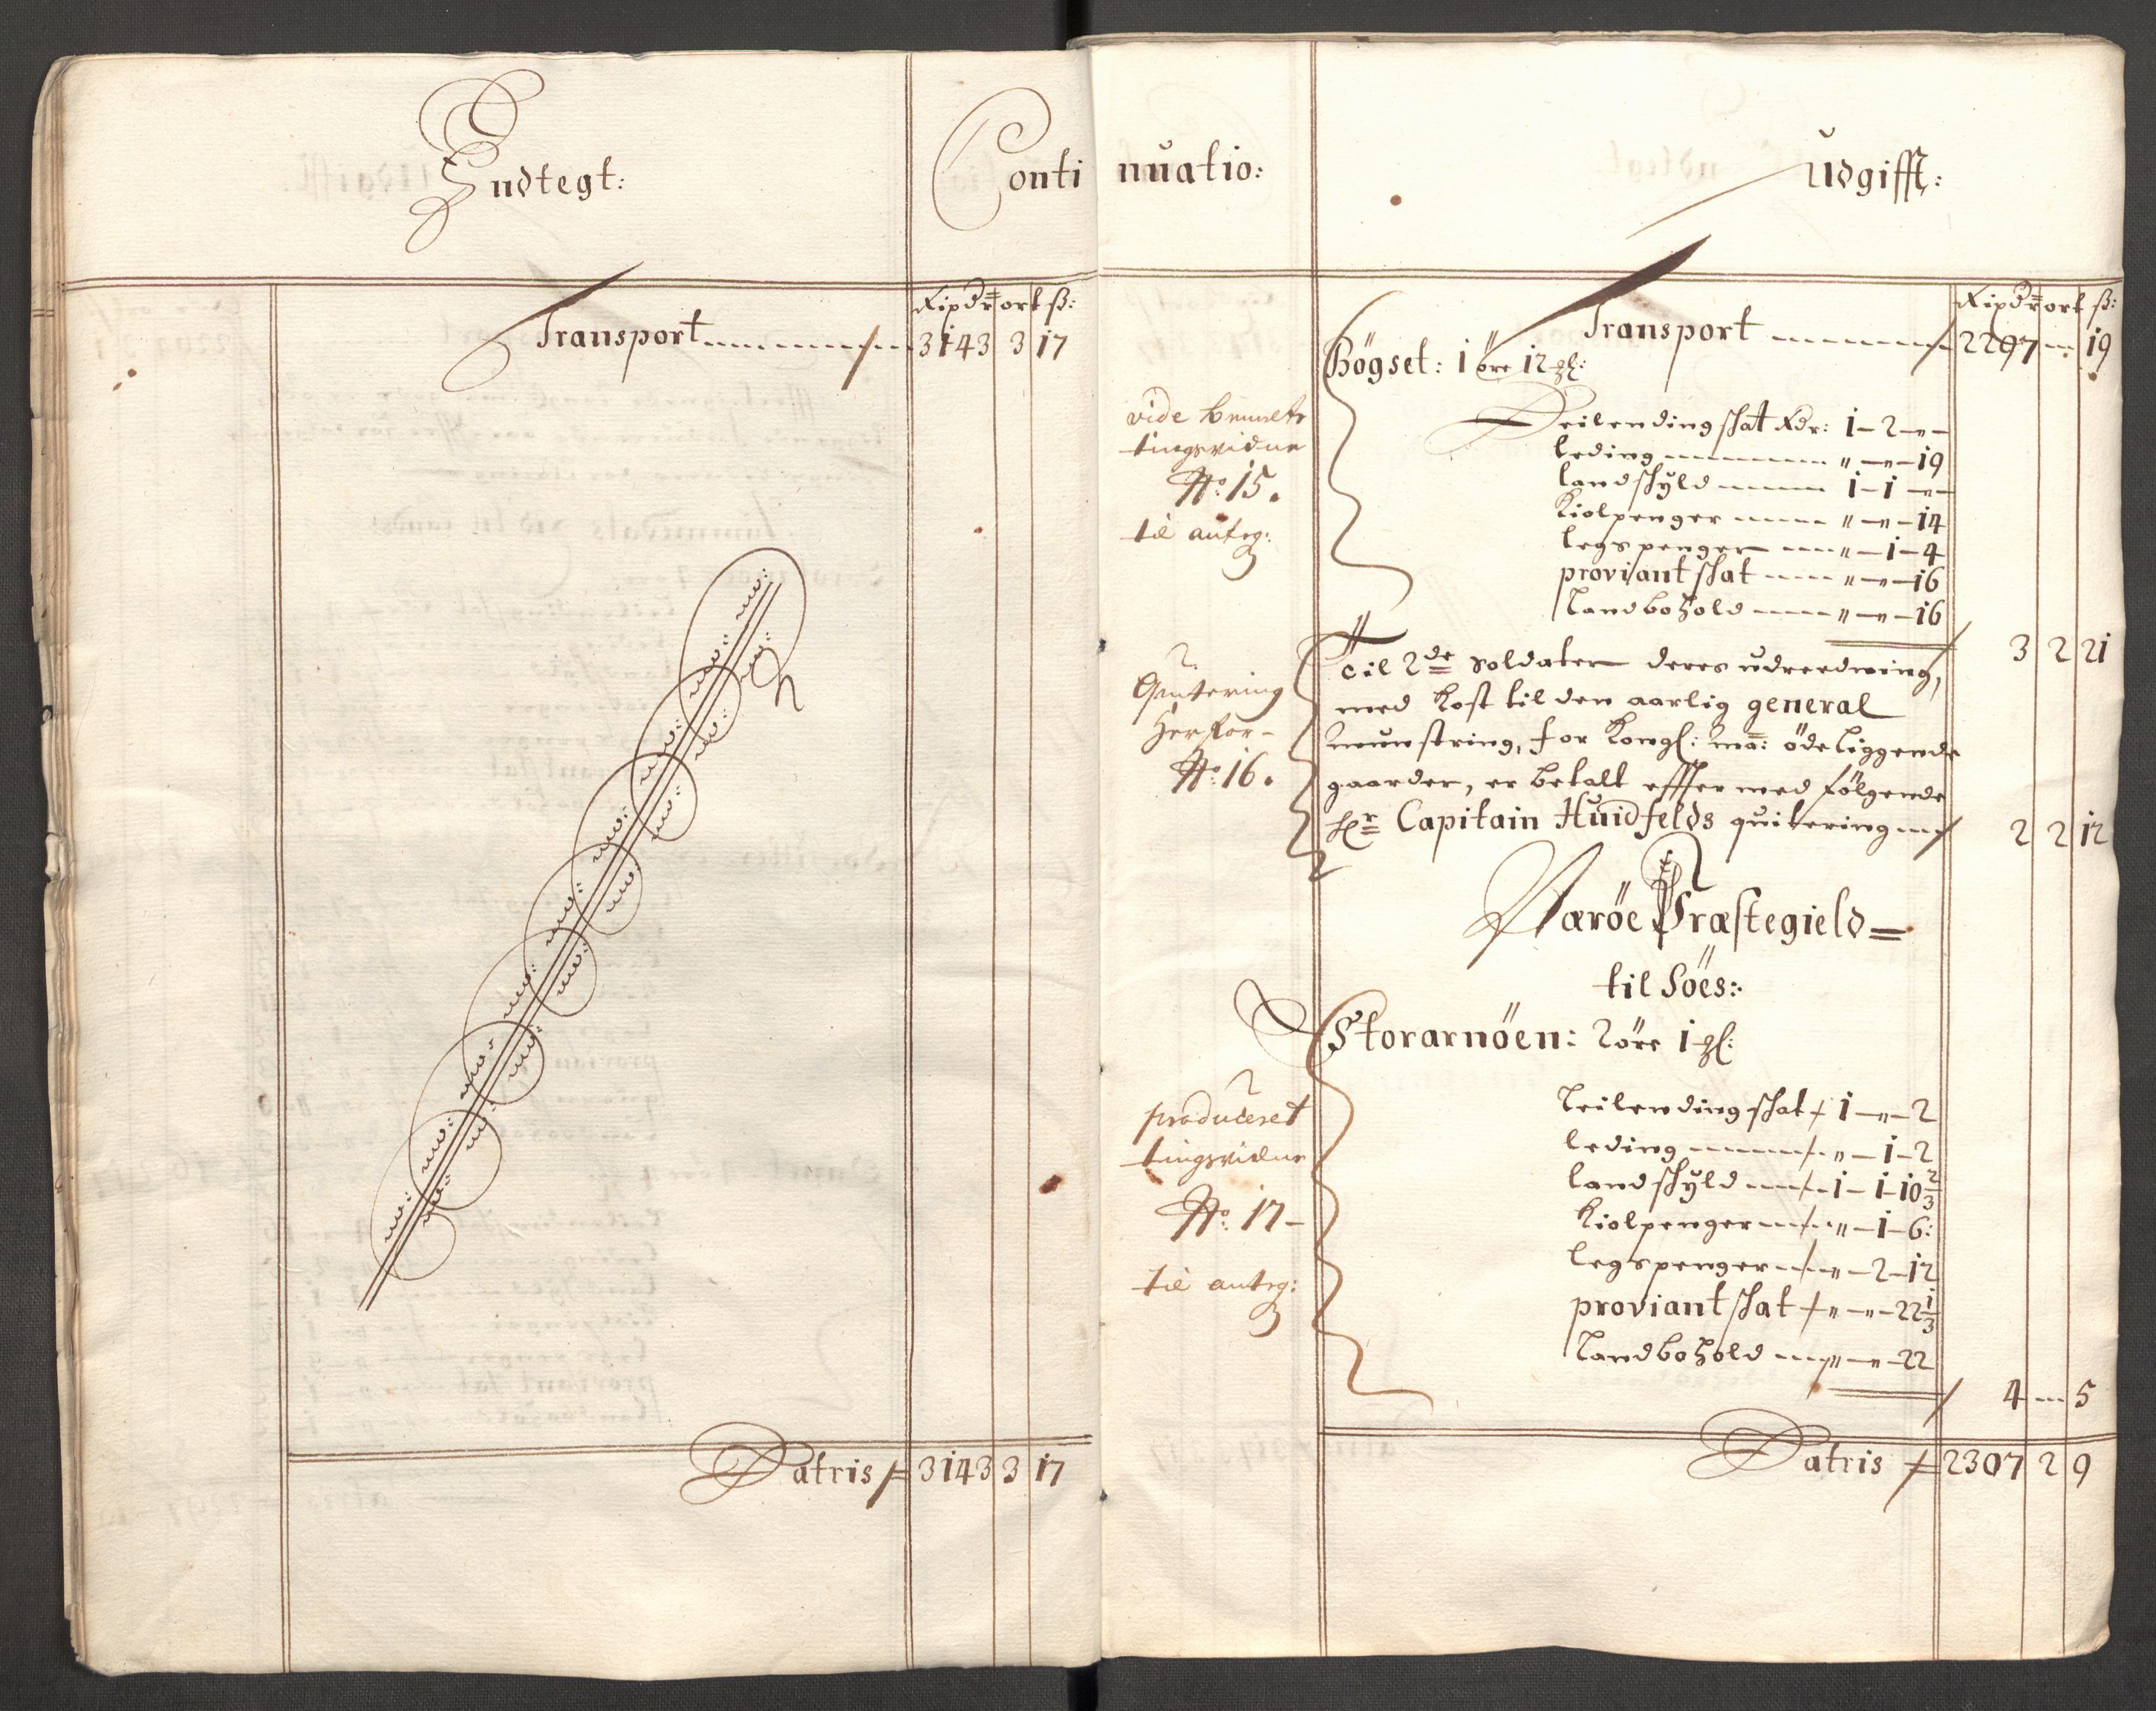 Indtegt:
Continuatio:
Udgifft:
Rixdr ort ß:
Transport 3143 3 17
Latris 3143 3 17
Rixdr ort ß:
Transport 2297 – 19
Högset: 1 öre 12 gl:
vide bemelte
tingsvidne
No: 15.
til anteg:
Leilending schat Rdr: 1 – 2 – " –
leding " – " – 19
landschÿld 1 – 1 – " –
Kiolpenger " – " – 14
legspenger " – 1 – 4
proviant schat " – " – 16
Landbohold " – " – 16
3 2 21
Qvitering
herfor –
No: 16.
Til 2de Soldater deres udreedning,
med kost til den aarlig general
munstring, for Kongl: ma: öde liggende
gaarder, er betalt effter med følgende
Hr Capitain Huidfelds quitering 2 2 12
Næröe Præstegield =
til Söes:
Storarnöen: 2 öre 1 gl:
produceret
tingsvidne
No: 17 –
til anteg:
Leilending schat 1 – " – 2
leding " – 1 – 2
landschÿld 1 – 1 – 10 2/3
Kiolpenger " – 1 – 6:
legspenger " – 2 – 12
proviant schat " – " – 22 1/3
Landbohold " – " – 22
4 – 5
Latris 2307 2 9